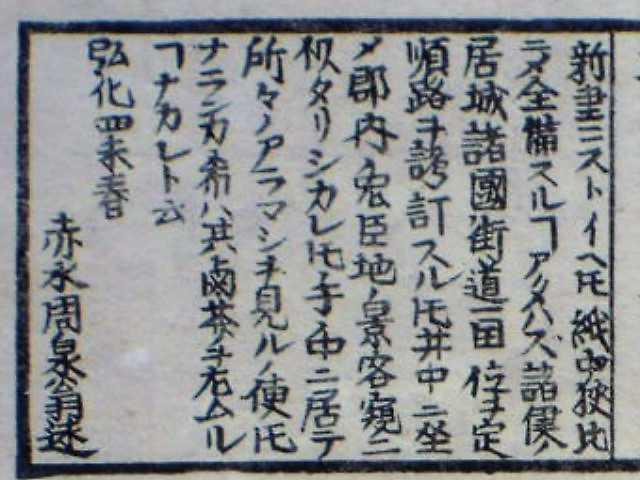 新圭ニストイヘ𪜈紙中狹比
ニメ全備スルヿアタハズ諸僕ノ
居城諸國街道一田位ヲ定
順路ヲ訂スル𪜈井中ニ坐
メ郡内ノ臣地ノ景客窺ニ
似タリシカレ𪜈手中ニ居テ
所々ノアラマシヲ見ルノ便𪜈
ナランカ希ハ其鹵莽ヲムル
ヿナカレト云
弘化四未春
赤永周泉翁述